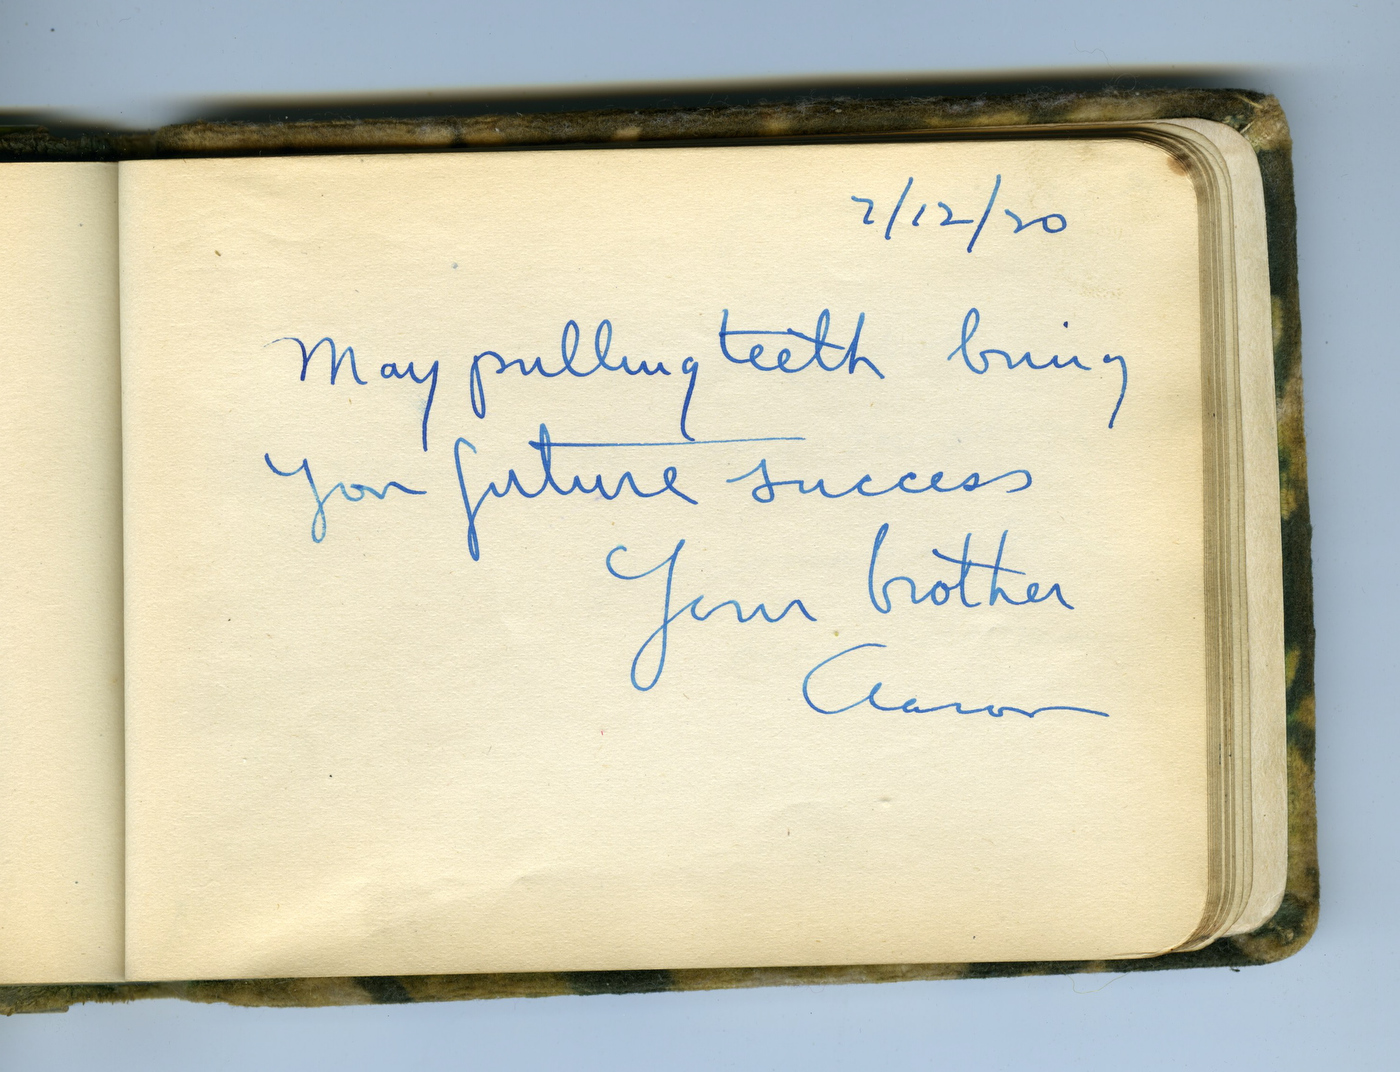 2/12/20
May pulling teeth bring
you future success
Your brother
Aaron